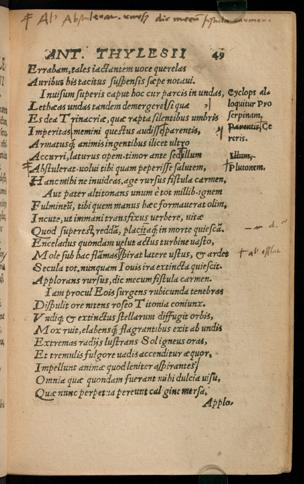 ANT. THYLESII 49
Errabam, tales iactantem uoce querelas
Auribus his tacitus suspensis sæpe notaui.
Inuisum superis caput hoc cur parcis in undas,
Lethæas undas tandem demergere! si qua
Es dea Trinacriæ, quæ rapta silentibus umbris
Imperitas, memini quectus audisse parentis,
Armatusq́ animis ingentibus ilicet ultro
Accurri, laturus opem, timor ante sed illum
Abstulerat. uolui tibi quam peperisse salutem,
Hanc mihi ne inuideas, age rursus fistula carmen.
Aut pater altitonans unum è tot millib. ignem
Fulmineũ, tibi quem manus hæc formauerat olim,
Incute, ut immani transfixus uerbere, uitæ
Quod superest, reddã, placitaq́ in morte quiescã.
Enceladus quondam uelut actus turbine uasto,
Mole sub hac flãmas spirat latere ustus, & ardes
Secula tot, nunquam Iouis ira extincta quiescit.
Applorans rursus, dic mecum fistula carmen.
Iam procul Eois surgens rubicunda tenebras
Dispulit ore nitens roseo Titonia coniunx.
Vndiq́ & extinctus stellarum diffugit orbis,
Mox ruit, elabensq́ flagrantibus exit ab undis
Extremas radijs lustrans Sol igneus oras,
Et tremulis fulgore uadis accenditur æquor,
Impellunt animæ quod leniter aspirantes
Omnia quæ quondam fuerant mihi dulcia uisu,
Quæ nunc perpetua pereunt cal gine mersa,
Applo,
Cyclops al=
loquitur Pro
serpinam,
Parentis, Ce
reris.
Illum,
Plutonem.